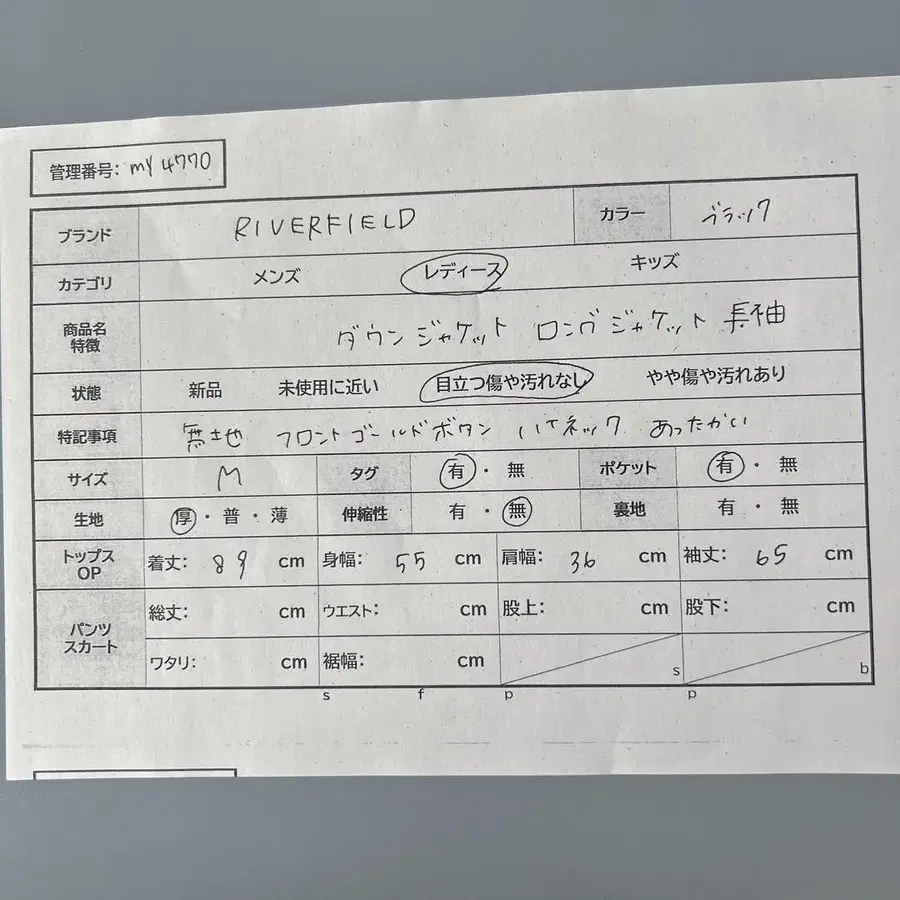 管理番号: my 4770
ブランド RIVERFIELD カラー ブラック
カテゴリ メンズ レディース キッズ
商品名 特徴 ダウンジャケット ロングジャケット 長袖
状態 新品 未使用に近い 目立つ傷や汚れなし やや傷や汚れあり
特記事項 無地 フロントゴールドボタン ハイネック あったかい
サイズ M タグ 有・無 ポケット 有・無
生地 厚・普・薄 伸縮性 有・無 裏地 有・無
トップス OP 着丈: 89 cm 身幅: 55 cm 肩幅: 36 cm 袖丈: 65 cm
パンツ スカート 総丈: cm ウエスト: cm 股上: cm 股下: cm
ワタリ: cm 裾幅: cm s b
s f p p